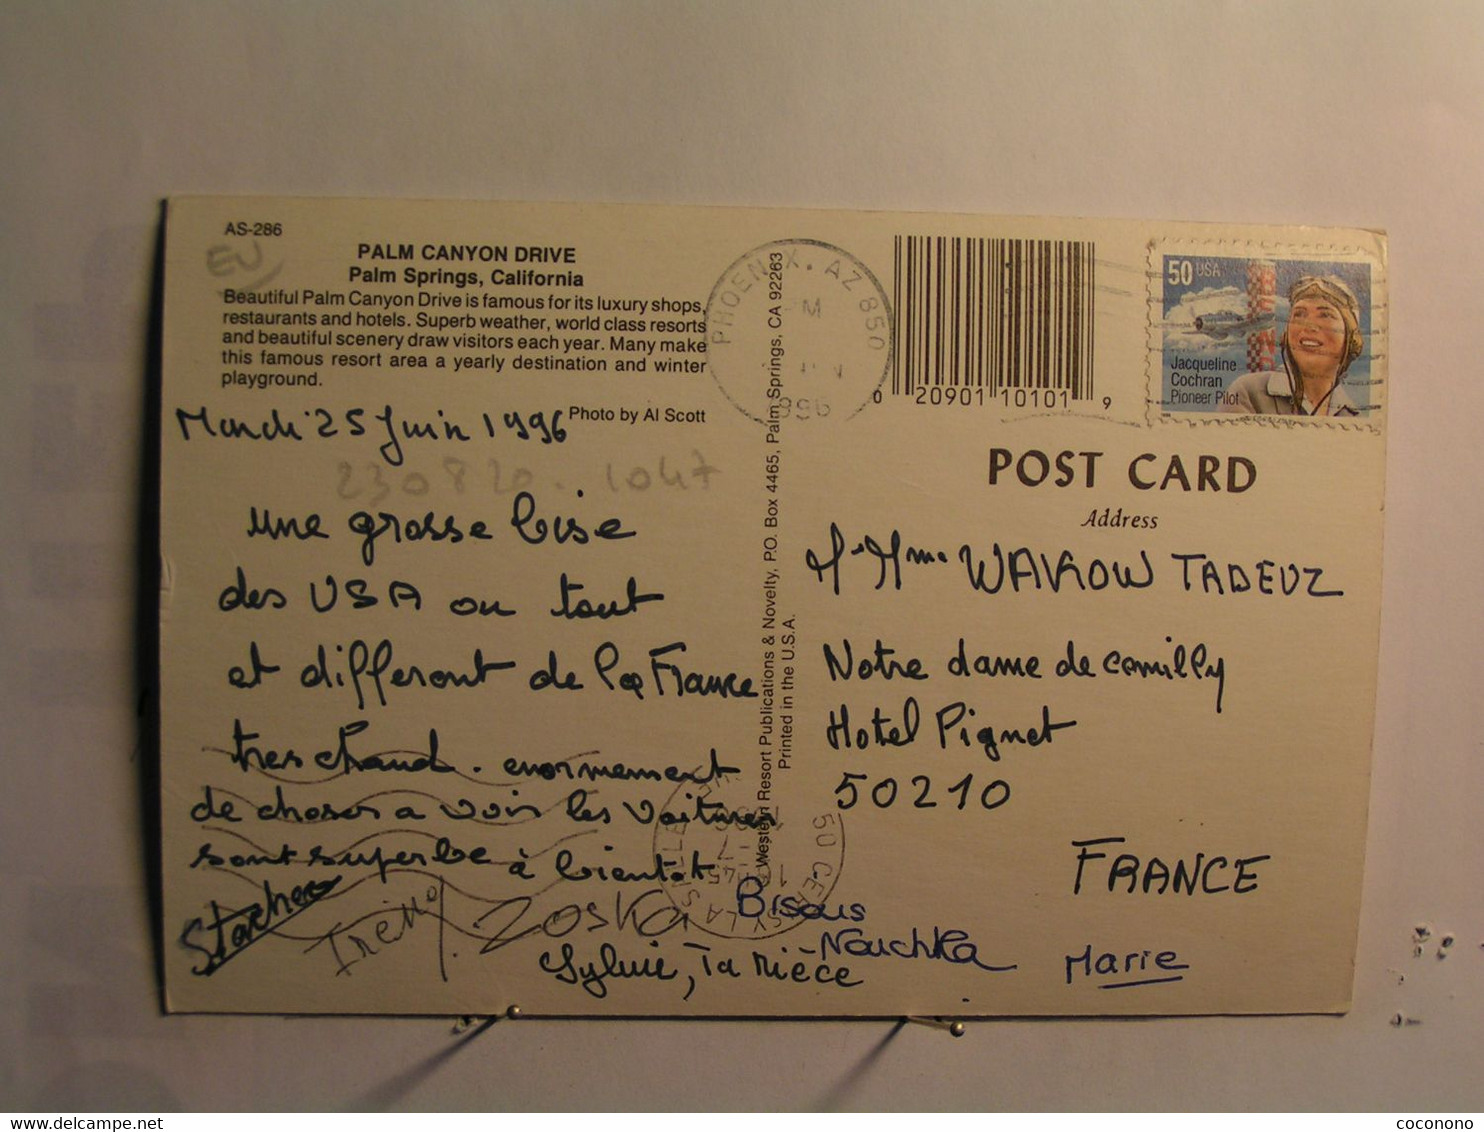 AS-286
EU
PALM CANYON DRIVE
Palm Springs, California
Beautiful Palm Canyon Drive is famous for its luxury shops,
restaurants and hotels. Superb weather, world class resorts
and beautiful scenery draw visitors each year. Many make
this famous resort area a yearly destination and winter
playground.
Photo by Al Scott
Mardi 25 Juin 1996
230820.1047
une grosse bise
des USA ou tout
et different de la France
tres chaud. enormement
de choses a voir les voitures
sont superbe à bientot
Stacheo
Irène
ZOSKA
Sylvie, Ta Nièce
Bisous
Nouchka
Marie
Western Resort Publications & Novelty, P.O. Box 4465, Palm Springs, CA 92263
Printed in the U.S.A.
PHOENIX, AZ 850
PM
1996
0 20901 10101 9
50 USA
Jacqueline
Cochran
Pioneer Pilot
POST CARD
Address
Mr Mme WAKOW TADEUZ
Notre dame de cenilly
Hotel Pignet
50210
FRANCE
50 CERISY LA SALLE
coconono